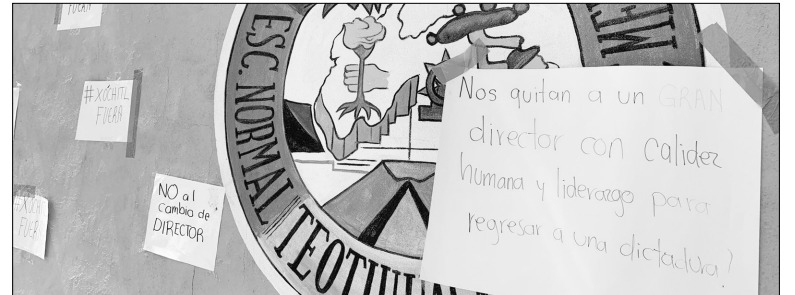 FUERA
#XÓCHITL
FUERA
#XÓCH
FUER
NO al
cambio de
DIRECTOR
ESC. NORMAL
TEOTIHUA
Nos quitan a un GRAN
director con calidez
humana y liderazgo para
regresar a una dictadura?